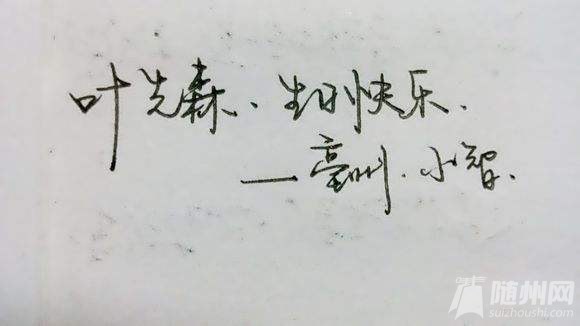 叶先森、生日快乐.
—亳州.小智.
随州网
suizhoushi.com